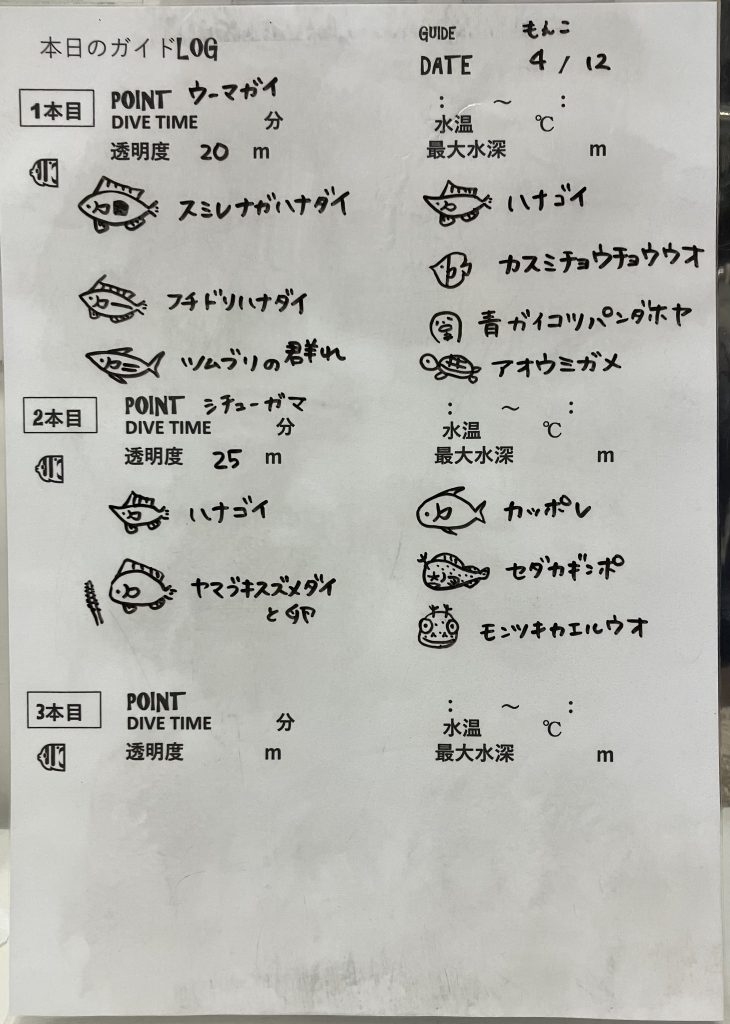 本日のガイドLOG
GUIDE もんこ
DATE 4 / 12
1本目
POINT ウーマガイ
DIVE TIME 分
透明度 20 m
: ～ :
水温 ℃
最大水深 m
スミレナガハナダイ
フチドリハナダイ
ツムブリの群れ
ハナゴイ
カスミチョウチョウウオ
青ガイコツパンダホヤ
アオウミガメ
2本目
POINT シチューガマ
DIVE TIME 分
透明度 25 m
: ～ :
水温 ℃
最大水深 m
ハナゴイ
ヤマブキスズメダイ
と卵
カッポレ
セダカギンポ
モンツキカエルウオ
3本目
POINT
DIVE TIME 分
透明度 m
: ～ :
水温 ℃
最大水深 m